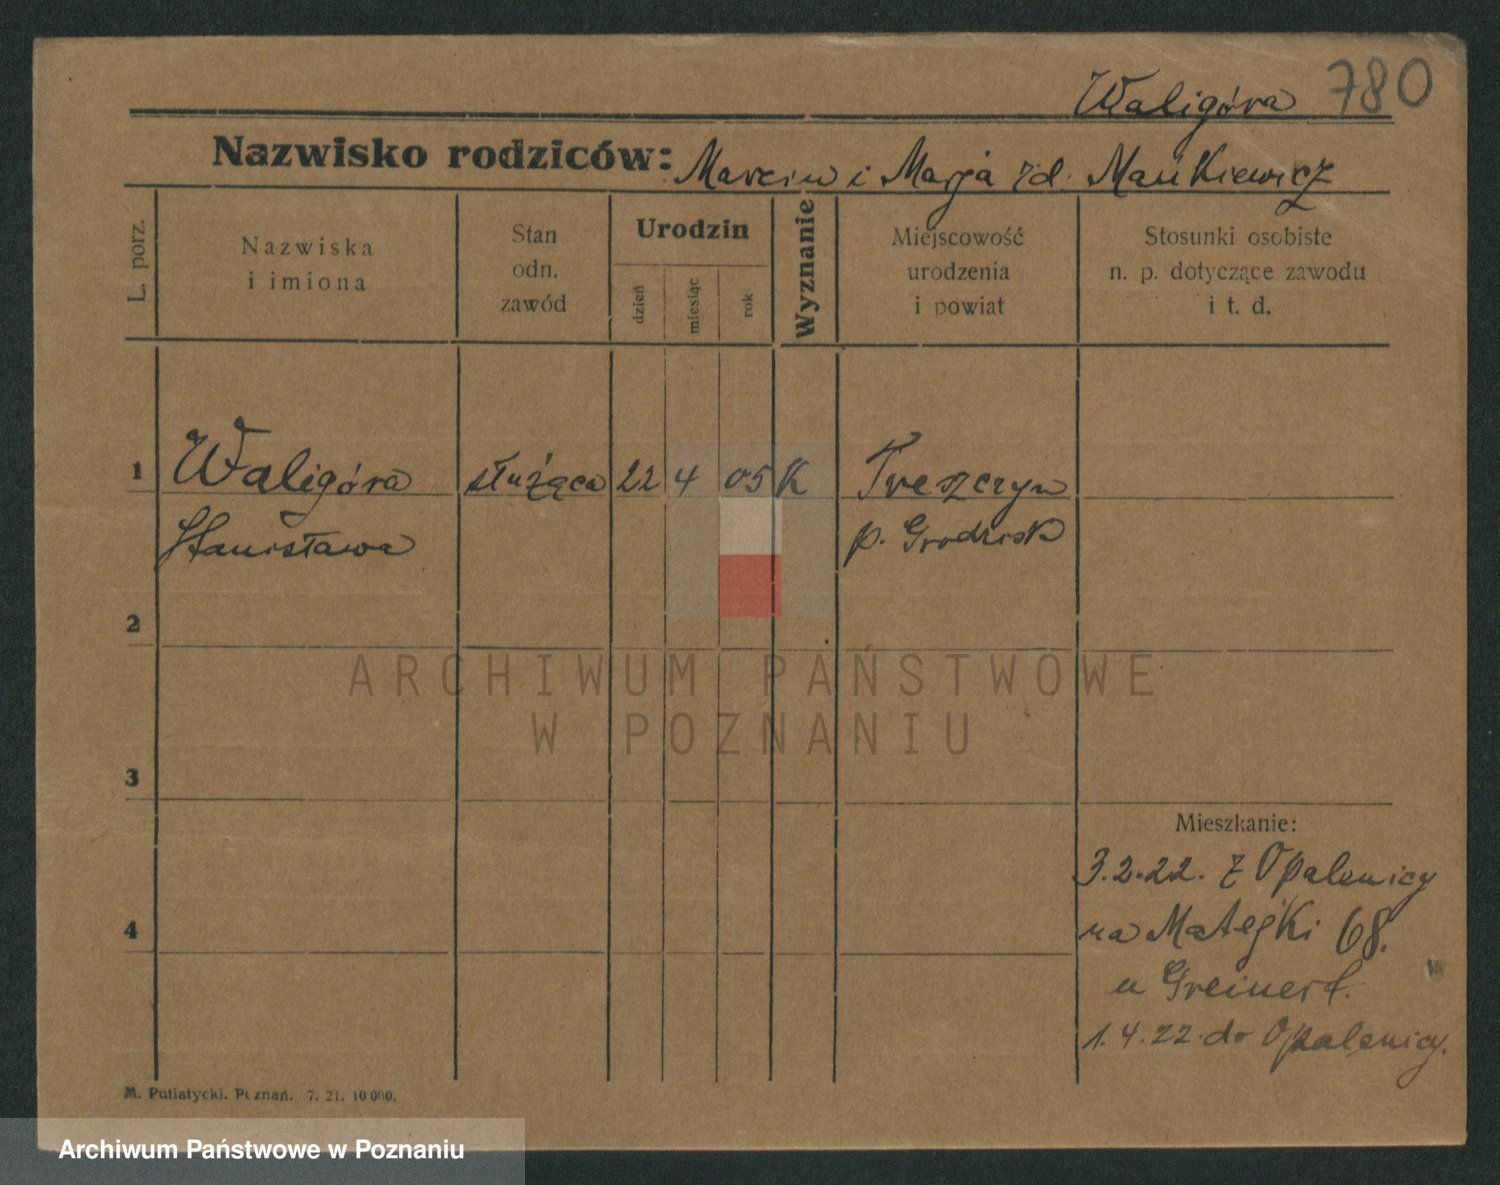 Waligóra 780
Nazwisko rodziców: Marcin i Marja zd. Mańkiewicz
L. porz.
Nazwiska
i imiona
Stan
odn.
zawód
Urodzin
dzień
miesiąc
rok
Wyznanie
Miejscowość
urodzenia
i powiat
Stosunki osobiste
n. p. dotyczące zawodu
i t. d.
1 Waligóra służąca 22 4 05 K Treszczyn
Stanisława p. Grodzisk
2
ARCHIWUM PAŃSTWOWE
W POZNANIU
3
Mieszkanie:
3.2.22. z Opalenicy
na Matejki 68.
4
u Greinert.
1.4.22 do Opalenicy.
M. Putiatycki. Poznań. 7. 21. 10 000.
Archiwum Państwowe w Poznaniu